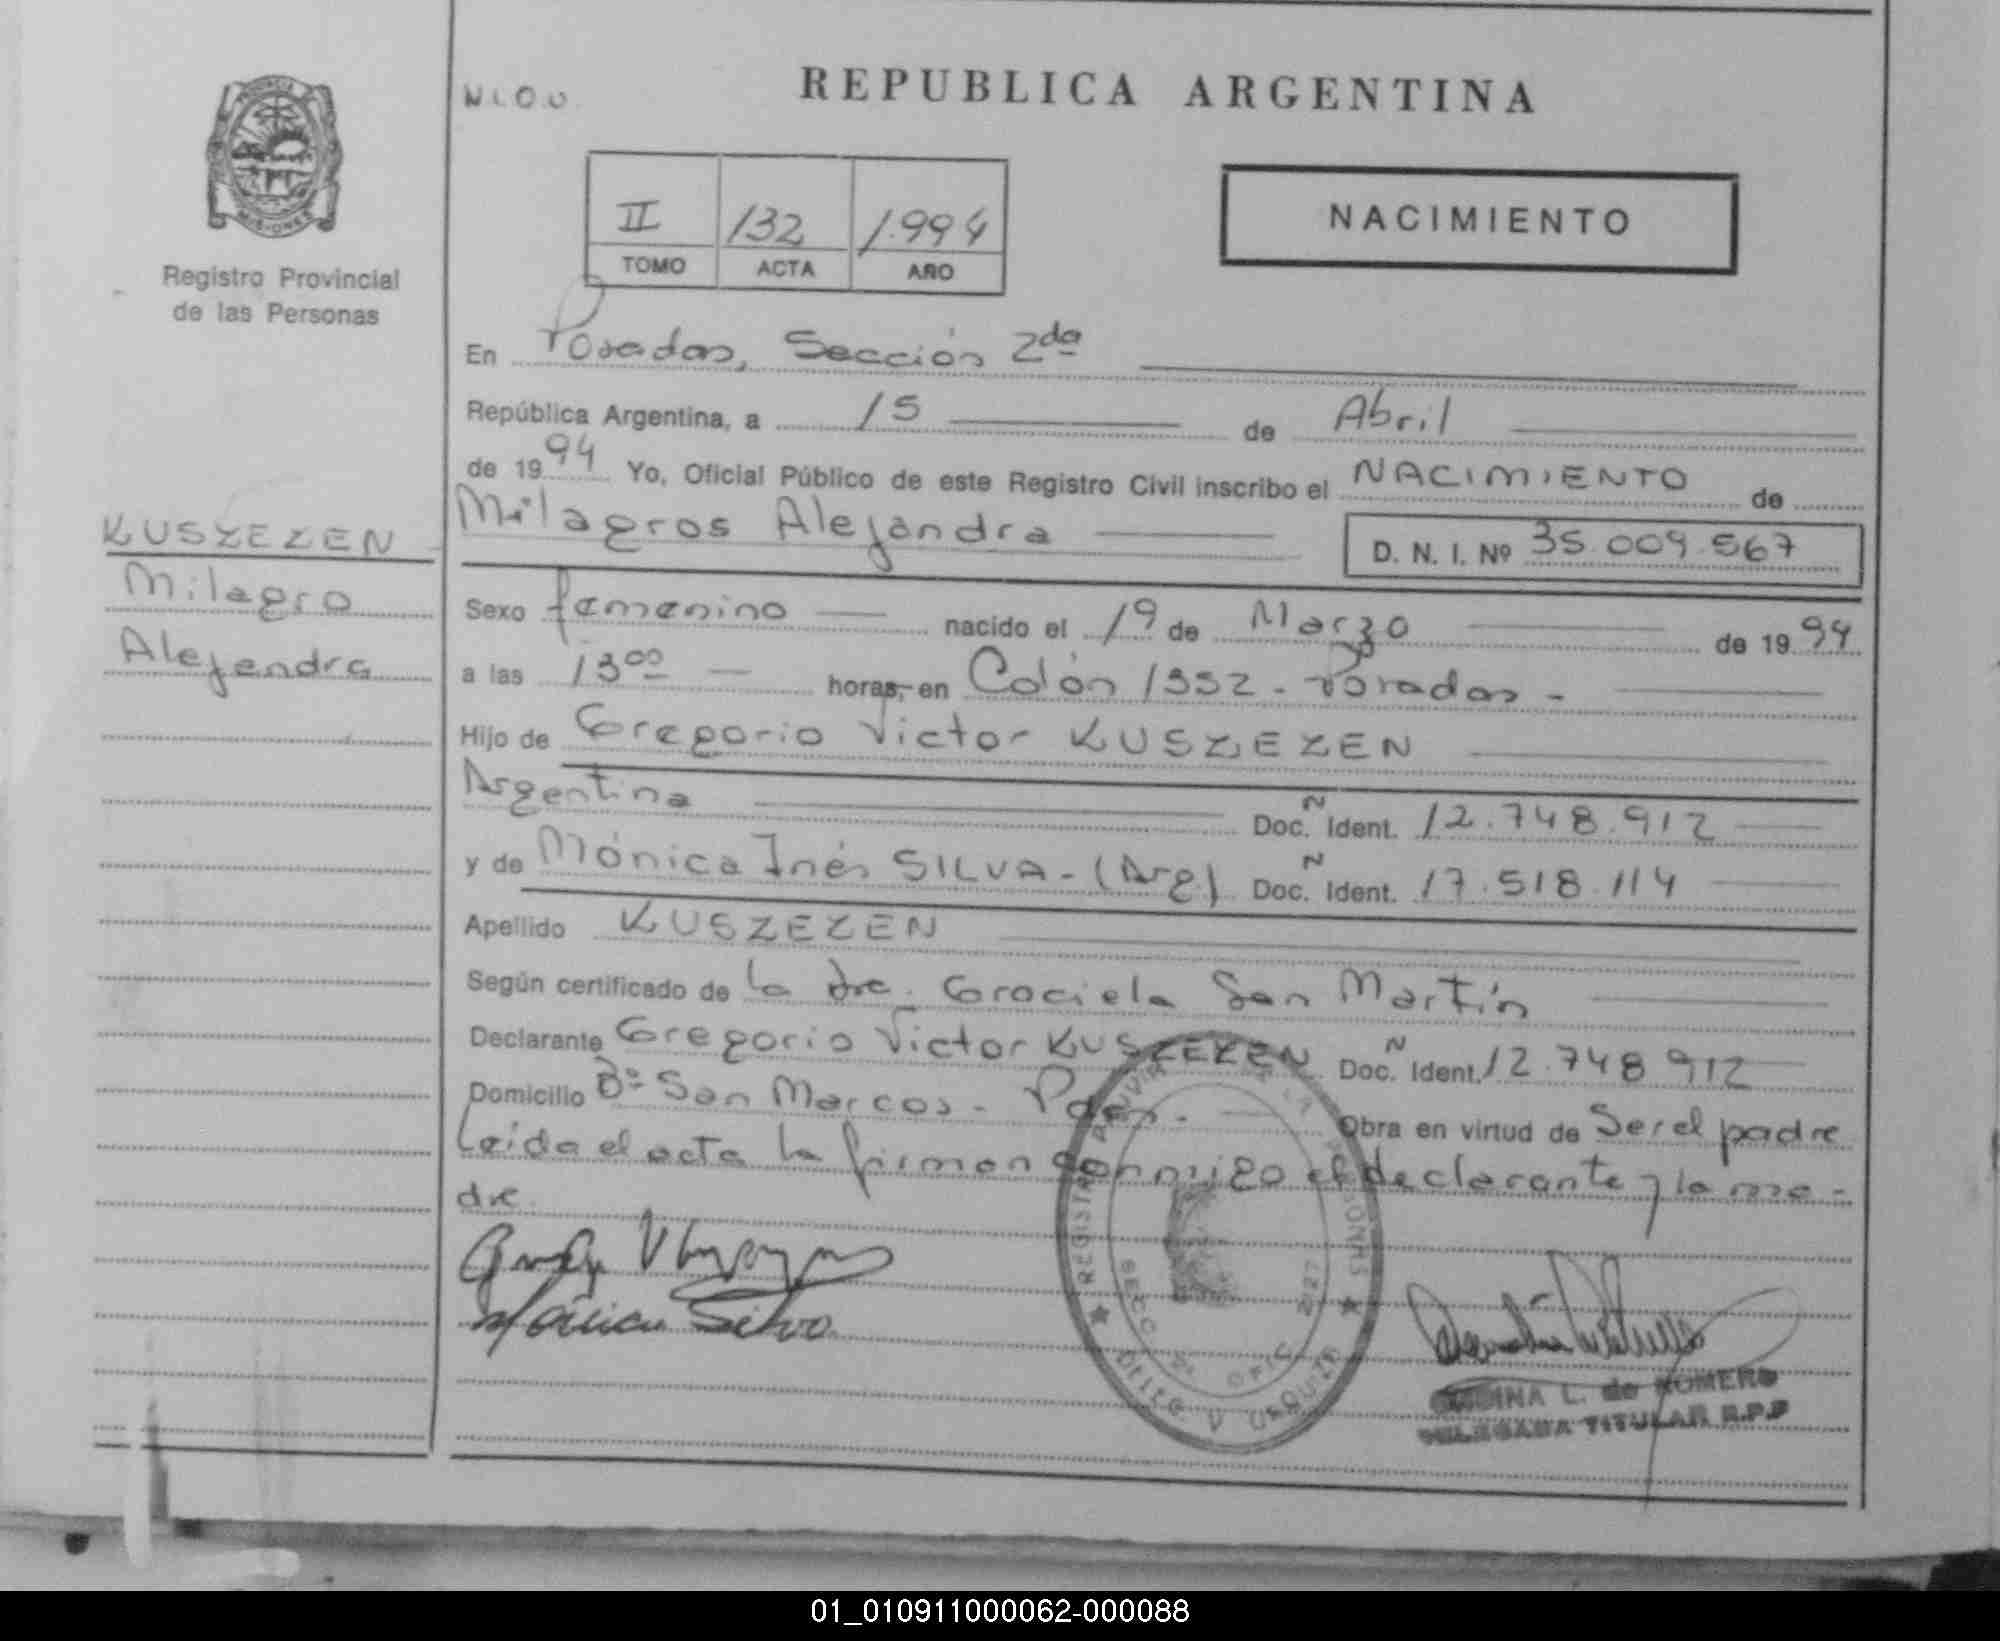 REPUBLICA ARGENTINA
N.L.O.U
II 132 1.994
TOMO ACTA AÑO
NACIMIENTO
MISIONES
Registro Provincial
de las Personas
En Posadas, Sección 2da
República Argentina, a 15 de Abril
de 1994 Yo, Oficial Público de este Registro Civil inscribo el NACIMIENTO de
Milagros Alejandra
D. N. I. Nº 35.009.567
KUSZEZEN
Milagro
Alejandra
Sexo femenino nacido el 19 de Marzo de 1994
a las 13 00 horas, en Colón 1352 - Posadas -
Hijo de Gregorio Victor KUSZEZEN
Argentina Doc. Ñ Ident. 12.748.912
y de Mónica Inés SILVA - (Arg) Doc. Ñ Ident. 17.518.114
Apellido KUSZEZEN
Según certificado de la dra. Graciela San Martín
Declarante Gregorio Victor KUSZEZEN Doc. Ñ Ident. 12.748 912
Domicilio Bº San Marcos - Pdas. - Obra en virtud de Ser el padre
Leida el acta la firman conmigo el declarante y la ma-
dre
Mónica Silva
REGISTRO PROVINCIAL DE LAS PERSONAS
L. de ROMERO
DELEGADA TITULAR R.P.P
01_010911000062-000088